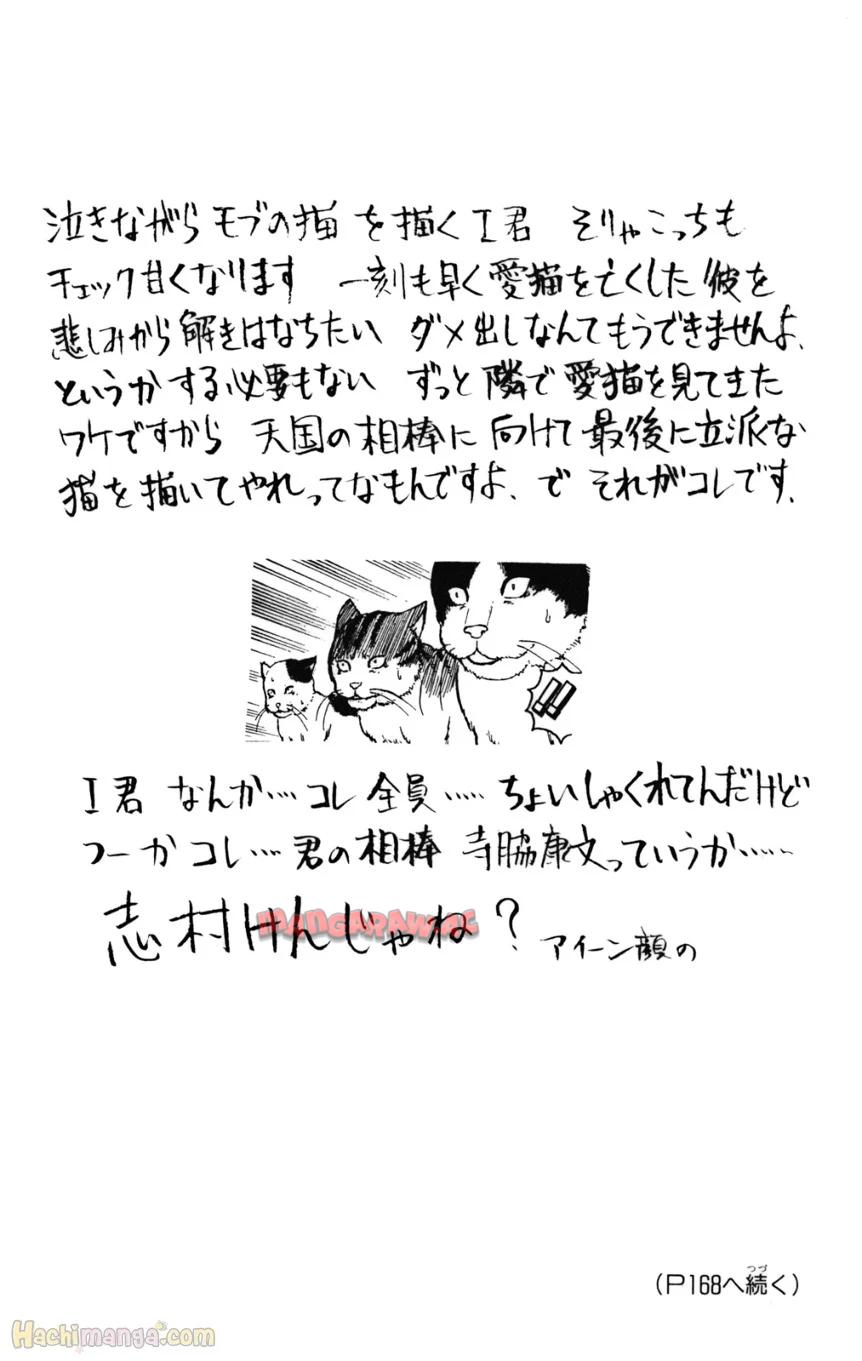 泣きながらモブの猫を描くI君　そりゃこっちも
チェック甘くなります　一刻も早く愛猫を亡くした彼を
悲しみから解きはなちたい　ダメ出しなんてもうできませんよ、
というかする必要もない　ずっと隣で愛猫を見てきた
ワケですから　天国の相棒に向けて最後に立派な
猫を描いてやれってなもんですよ、で　それがコレです、
!!
I君　なんか…コレ全員……ちょいしゃくれてんだけど
つーかコレ…君の相棒　寺脇康文っていうか……
志村けんじゃね？アイーン顔の
MANGARAWAC
（P168へ続く）
つづ
Hachimanga.com